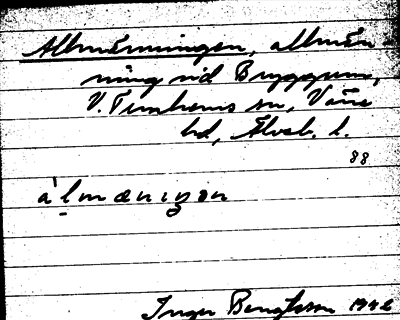 Allmänningen, allmän-
ning vid Bryggum,
V. Tunhems sn, Väne
hd, Älvsb. l.
88
Inger Bengtsson 1942